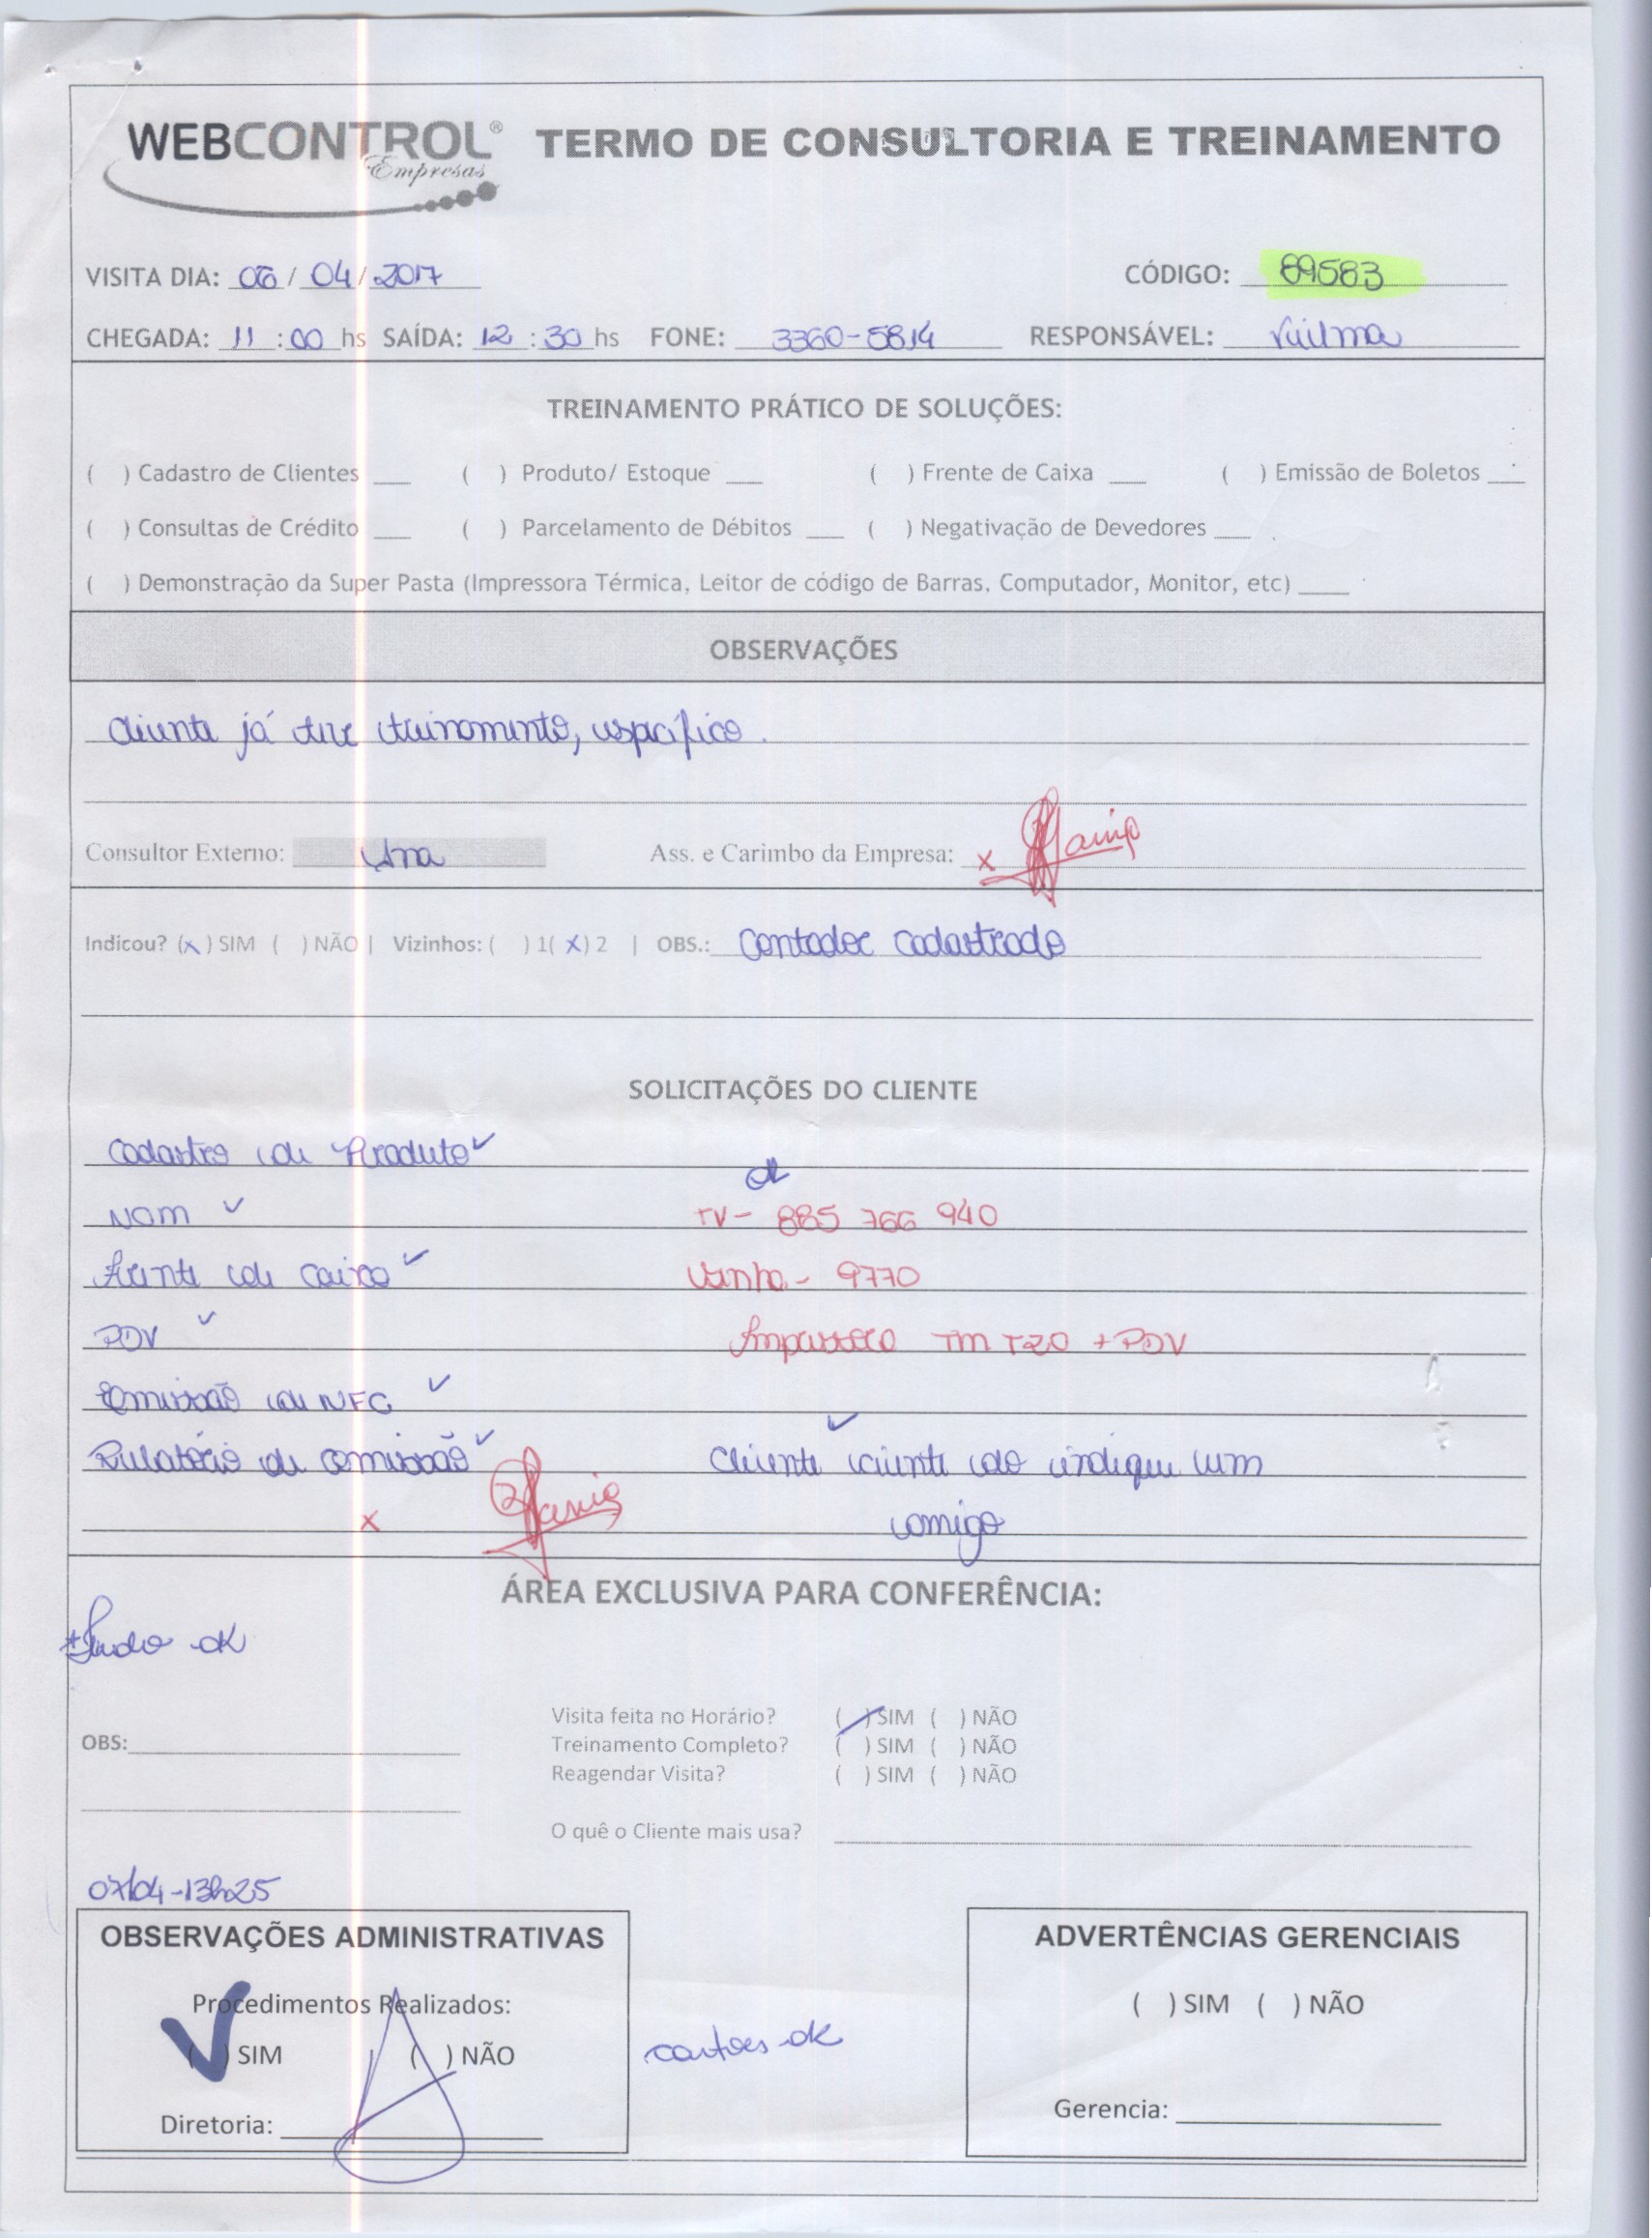 WEBCONTROL® Empresas TERMO DE CONSULTORIA E TREINAMENTO
VISITA DIA: 06 / 04 / 2017 CÓDIGO: 69583
CHEGADA: 11 : 00 hs SAÍDA: 12 : 30 hs FONE: 3360-5814 RESPONSÁVEL: Vuilma
TREINAMENTO PRÁTICO DE SOLUÇÕES:
( ) Cadastro de Clientes ___ ( ) Produto/ Estoque ___ ( ) Frente de Caixa ___ ( ) Emissão de Boletos ___
( ) Consultas de Crédito ___ ( ) Parcelamento de Débitos ___ ( ) Negativação de Devedores ___
( ) Demonstração da Super Pasta (Impressora Térmica, Leitor de código de Barras, Computador, Monitor, etc) ____
OBSERVAÇÕES
cliente já teve treinamento, especifico.
Consultor Externo: Ana Ass. e Carimbo da Empresa: x
Indicou? (x) SIM ( ) NÃO | Vizinhos: ( ) 1 (x) 2 | OBS.: Contador cadastrado
SOLICITAÇÕES DO CLIENTE
Cadastro de Produto ✓
ok
NCM ✓ TV - 885 766 940
Frente de caixa ✓ senha - 9770
PDV ✓ Impressora TM T20 + PDV
Emissão de NFC ✓
Relatório de comissão ✓ cliente ciente do indique um ✓
x amigo
ÁREA EXCLUSIVA PARA CONFERÊNCIA:
*Tudo ok
Visita feita no Horário? (✓) SIM ( ) NÃO
OBS: Treinamento Completo? ( ) SIM ( ) NÃO
Reagendar Visita? ( ) SIM ( ) NÃO
O quê o Cliente mais usa?
07/04-13h25
OBSERVAÇÕES ADMINISTRATIVAS
Procedimentos Realizados:
(✓) SIM ( ) NÃO
Diretoria:
cartões ok
ADVERTÊNCIAS GERENCIAIS
( ) SIM ( ) NÃO
Gerencia: